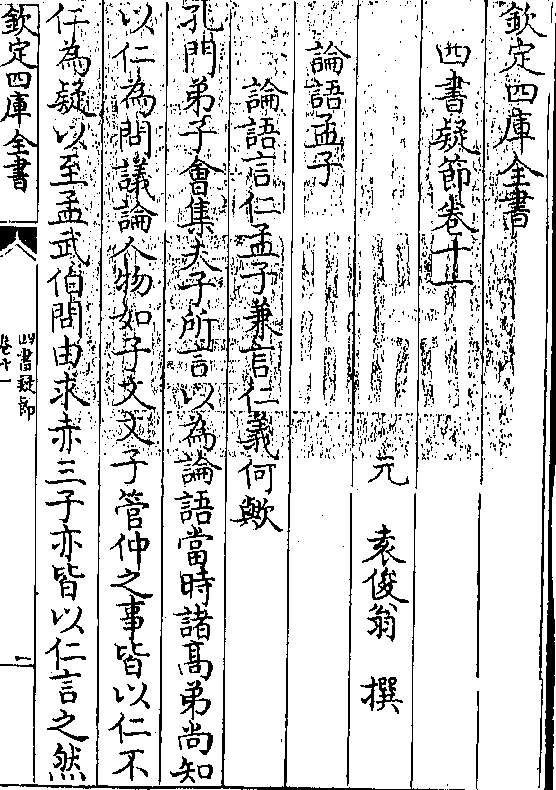 欽定四庫全書
四書疑節卷十一
元 袁俊翁 撰
論語孟子
論語言仁孟子兼言仁義何歟
孔門弟子會集夫子所言以為論語當時諸髙弟尚知
以仁為問議論人物如子文文子管仲之事皆以仁不
仁為疑以至孟武伯問由求赤三子亦皆以仁言之然
欽定四庫全書
四書疑節
卷十一
一